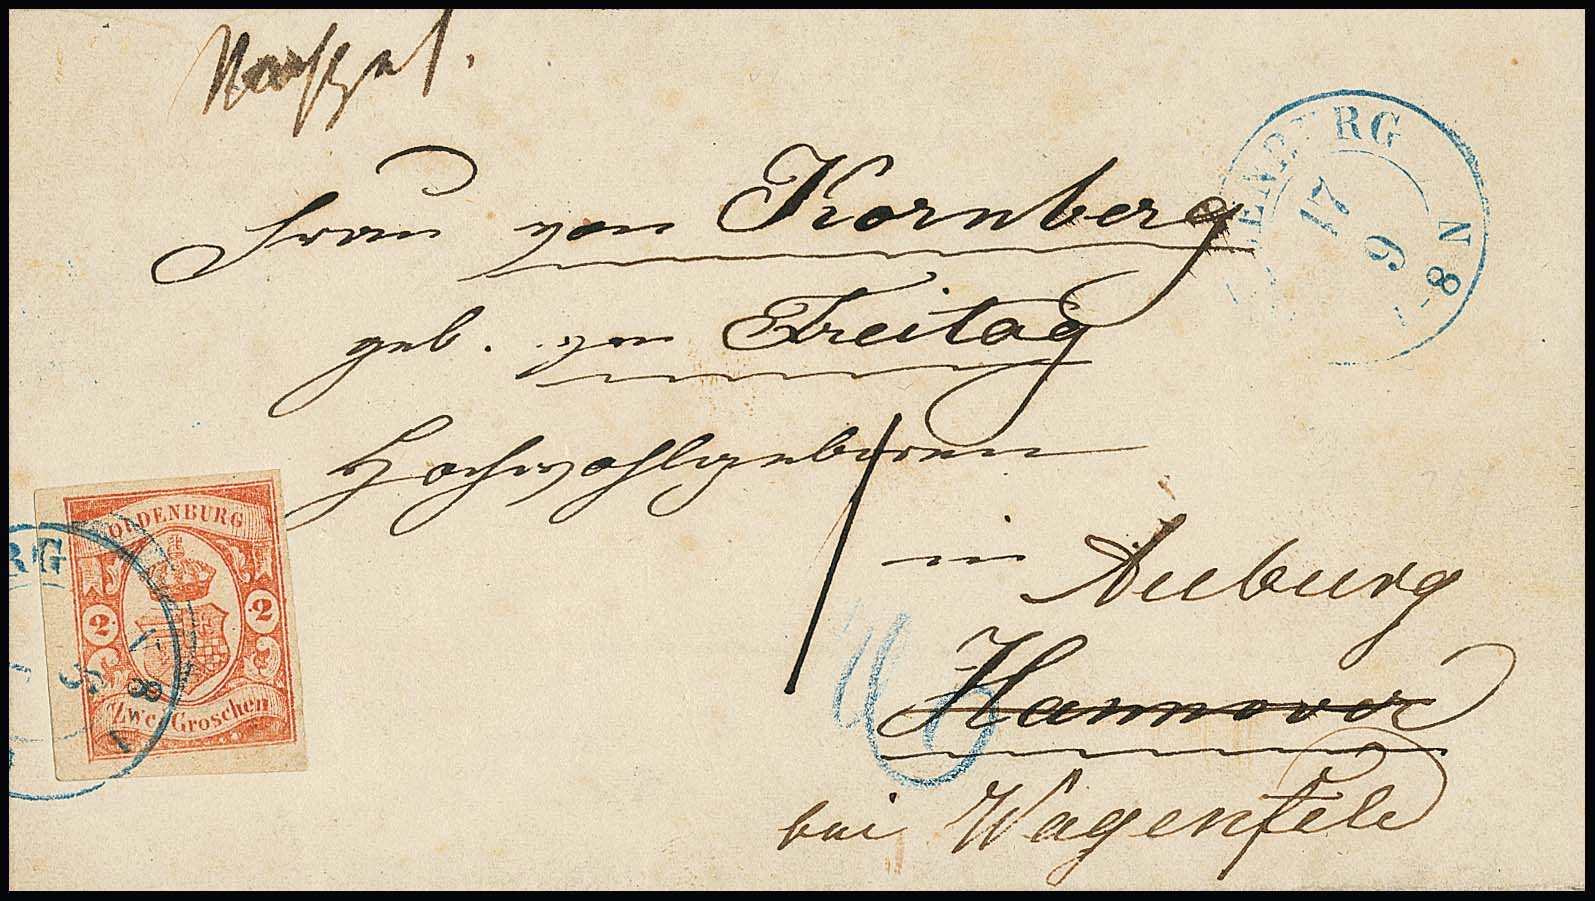 Frau von Kornberg
geb. von Freitag
Hochwohlgeboren
in Auburg
Hannover
bei Wagenfeld
ENBURG
17
9
N 8-
OLDENBURG
2 2
Zwei Groschen
RG